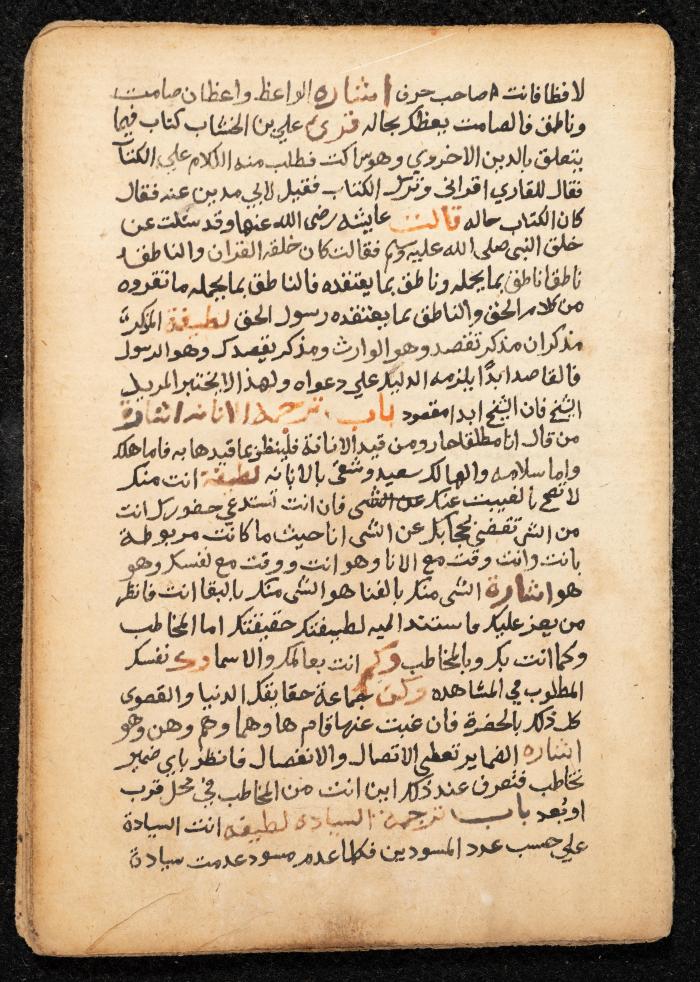 لافظا فانت صاحب حرف اشارة الواعظ واعظان صامت
وناطق فالصامت يعظك بحاله قرئ علي بن الخشاب كتاب فيما
يتعلق بالدين الاخروي وهو ساكت فطلب منه الكلام علي الكتاب
فقال للقاري اقرانى وترك الكتاب فقيل لابي مدين عنه فقال
كان الكتاب حاله قالت عايشه رضى الله عنها وقد سئلت عن
خلق النبي صلى الله عليه وسلم فقالت كان خلقه القران والناطق
ناطقا ناطق بما يجمله وناطق بما يعتقده فالناطق بما يجمله ما تقروه
من كلام الحق والناطق بما يعتقده رسول الحق لطيفة المذكرات
مذكران مذكر تقصد وهو الوارث ومذكر يقصدك وهو الرسول
فالقاصد ابدا يلزمه الدليل علي دعواه ولهذا لا يختبر المريد
الشيخ فان الشيخ ابدا مقصود باب ترجمة الانانه اشارة
من قال انا مطلقا حار ومن قيد الانانة فلينظر بما قيدها به فاما هلك
واما سلامه والهالك سعيد وشقي بالانانه لطيفة انت منك
لا تصح بالغيبت عنك عن الشى فان انت تستدعي حضورك انت
من الشى تقضى بحجابك عن الشى انا حيث ما كانت مربوطة
بانت وانت وقت مع الانا وهو انت ووقت مع نفسك وهو
هو اشارة الشى منك بالفنا هو الشى منك بالبقا انت فانظر
من يعز عليك ما ستند اليه لطيفتك حقيقتك اما المخاطب
وكما انت بك وبالمخاطب وكم انت بعالمك والاسما نفسك
المطلوب في المشاهده وكن جماعة حقايقك الدنيا والقصوى
كل ذلك بالحضرة فان غبت عنها قام ها وهما وهم وهن وهو
اشاره الضماير تعطى الاتصال والانفصال فانظر باي ضمير
تخاطب فتعرف عند ذلك اين انت من المخاطب في محل قرب
او بعد باب ترجمة السياده لطيفه انت السيادة
علي حسب عدد المسودين فكلما عدم مسود عدمت سيادة